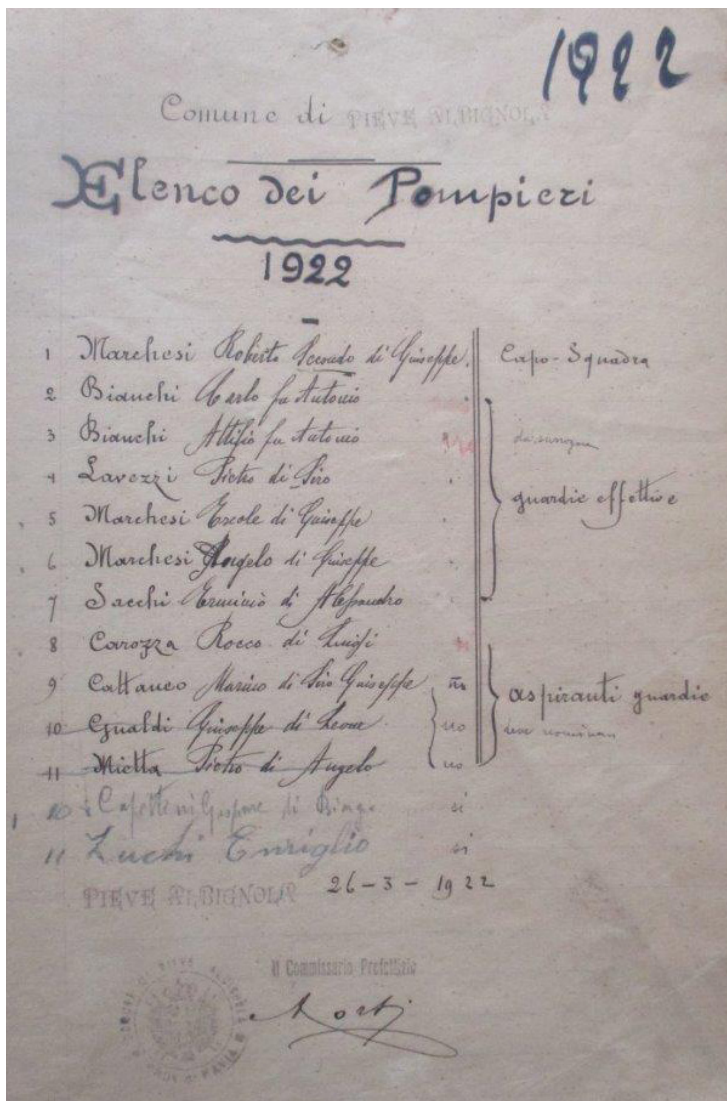 1922
Comune di PIEVE ALBIGNOLA
Elenco dei Pompieri
1922
1 Marchesi Roberto Secondo di Giuseppe. Capo-Squadra
2 Bianchi Carlo fu Antonio
3 Bianchi Attilio fu Antonio
4 Lavezzi Pietro di Siro
guardie effettive
5 Marchesi Ercole di Giuseppe
6 Marchesi Angelo di Giuseppe
7 Sacchi Erminio di Alessandro
8 Carozza Rocco di Luigi
9 Cattaneo Marino di Siro Giuseppe no
aspiranti guardie
10 Gualdi Giuseppe di Leone no
11 Mietta Pietro di Angelo no
10 Capettini Gaspare di Biagio si
11 Zucchi Enriglio si
PIEVE ALBIGNOLA 26-3-1922
Il Commissario Prefettizio